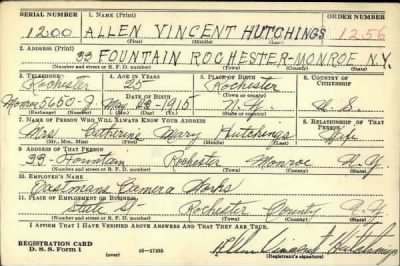 SERIAL NUMBER 1. NAME (Print) ORDER NUMBER
1200 ALLEN VINCENT HUTCHINGS 1256
(First) (Middle) (Last)
2. ADDRESS (Print)
33 FOUNTAIN ROCHESTER-MONROE N.Y.
(Number and street or R. F. D. number) (Town) (County) (State)
3. TELEPHONE 4. AGE IN YEARS 5. PLACE OF BIRTH 6. COUNTRY OF CITIZENSHIP
Rochester 25 Rochester
DATE OF BIRTH (Town or county)
Monroe 5660-J May 1915 N.Y. U.S.
(Exchange) (Number) (Mo.) (Day) (Yr.) (State or country)
7. NAME OF PERSON WHO WILL ALWAYS KNOW YOUR ADDRESS 8. RELATIONSHIP OF THAT PERSON
Mrs Catherine Mary Hutchings Wife
(Mr., Mrs., Miss) (First) (Middle) (Last)
9. ADDRESS OF THAT PERSON
33 - Fountain Rochester Monroe N.Y
(Number and street or R. F. D. number) (Town) (County) (State)
10. EMPLOYER'S NAME
Eastmans Camera Works
11. PLACE OF EMPLOYMENT OR BUSINESS
State St- Rochester County N.Y
(Number and street or R. F. D. number) (Town) (County) (State)
I AFFIRM THAT I HAVE VERIFIED ABOVE ANSWERS AND THAT THEY ARE TRUE.
REGISTRATION CARD
D. S. S. Form 1 (over) 16-17105 Allen Vincent Hutchings
(Registrant's signature)